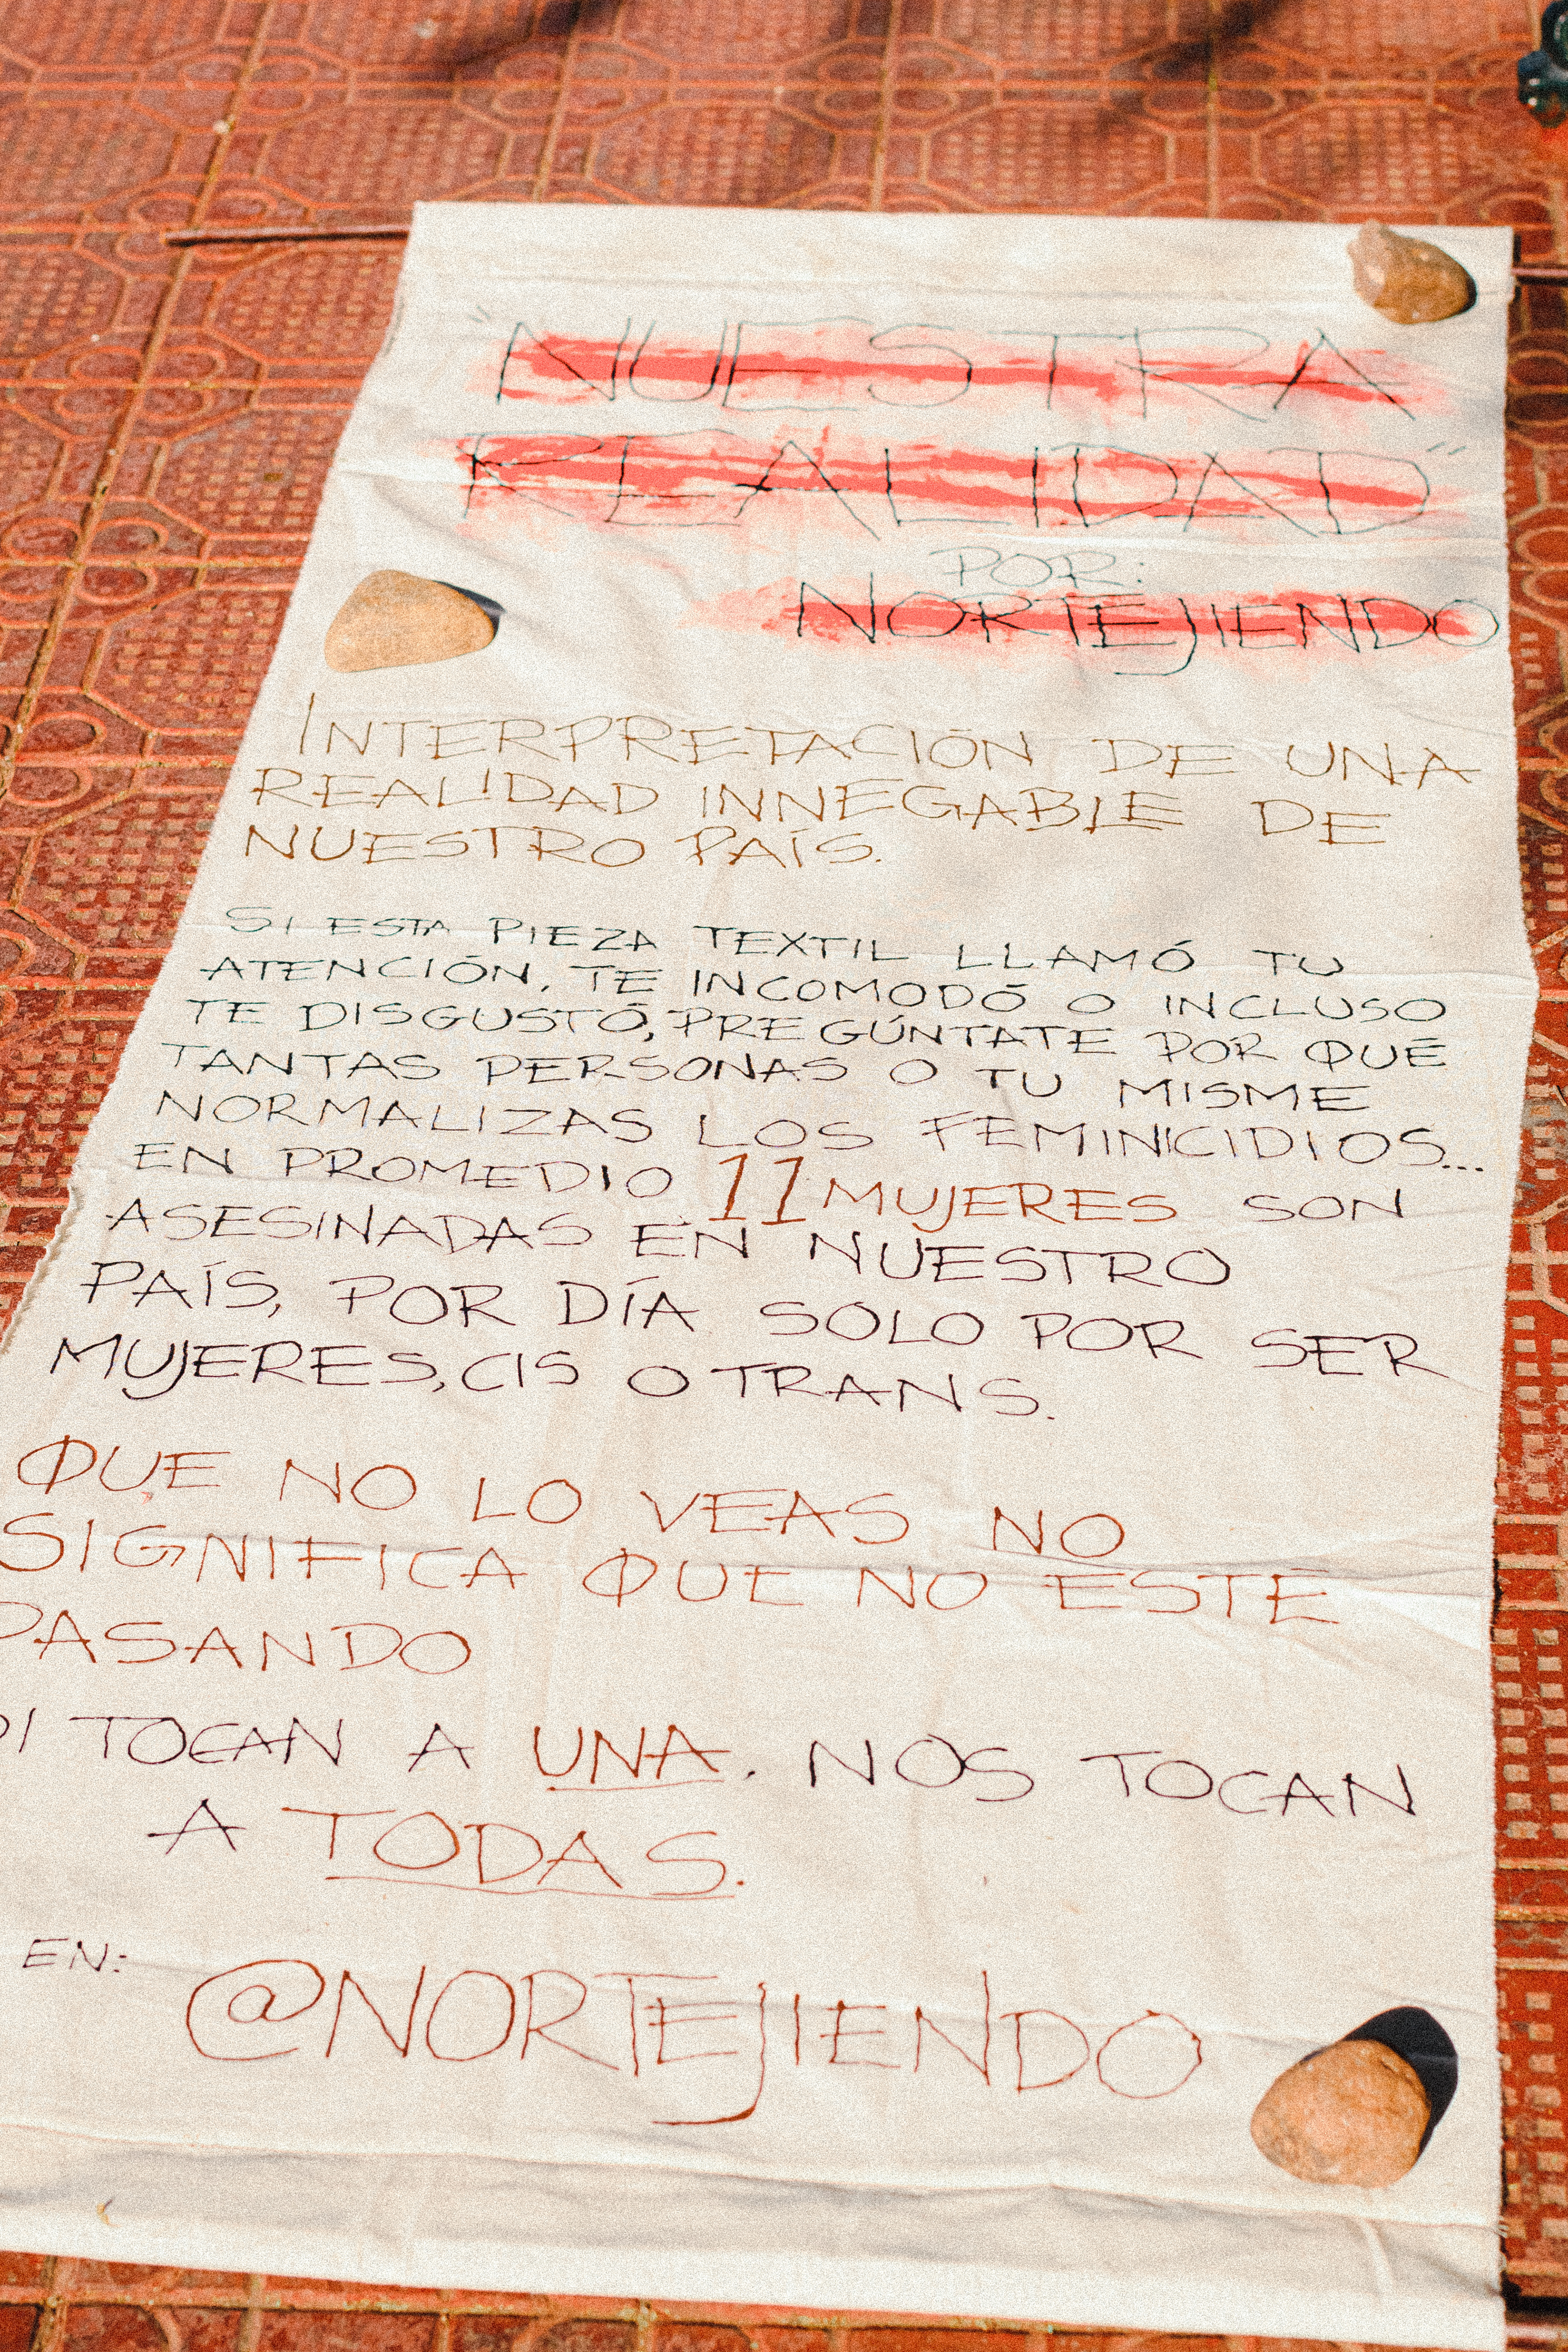 "NUESTRA
REALIDAD"
POR:
NORTEJIENDO
INTERPRETACIÓN DE UNA
REALIDAD INNEGABLE DE
NUESTRO PAÍS.
SI ESTA PIEZA TEXTIL LLAMÓ TU
ATENCIÓN, TE INCOMODÓ O INCLUSO
TE DISGUSTÓ, PREGÚNTATE POR QUÉ
TANTAS PERSONAS O TU MISME
NORMALIZAS LOS FEMINICIDIOS...
EN PROMEDIO 11 MUJERES SON
ASESINADAS EN NUESTRO
PAÍS, POR DÍA SOLO POR SER
MUJERES, CIS O TRANS.
QUE NO LO VEAS NO
SIGNIFICA QUE NO ESTÉ
PASANDO
TOCAN A UNA. NOS TOCAN
A TODAS.
EN:
@NORTEJIENDO